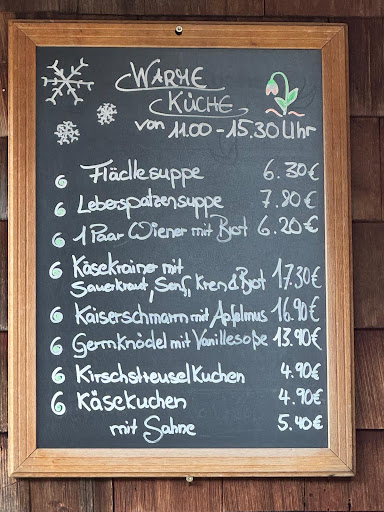 Warme
Küche
von 11.00 - 15.30 Uhr
Flädlesuppe 6.30€
Leberspatzensuppe 7.80€
1 Paar Wiener mit Brot 6.20€
Käsekrainer mit
Sauerkraut, Senf, Kren & Brot 17.30€
Kaiserschmarrn mit Apfelmus 16.90€
Germknödel mit Vanillesoße 13.90€
Kirschstreuselkuchen 4.90€
Käsekuchen 4.90€
mit Sahne 5.40€